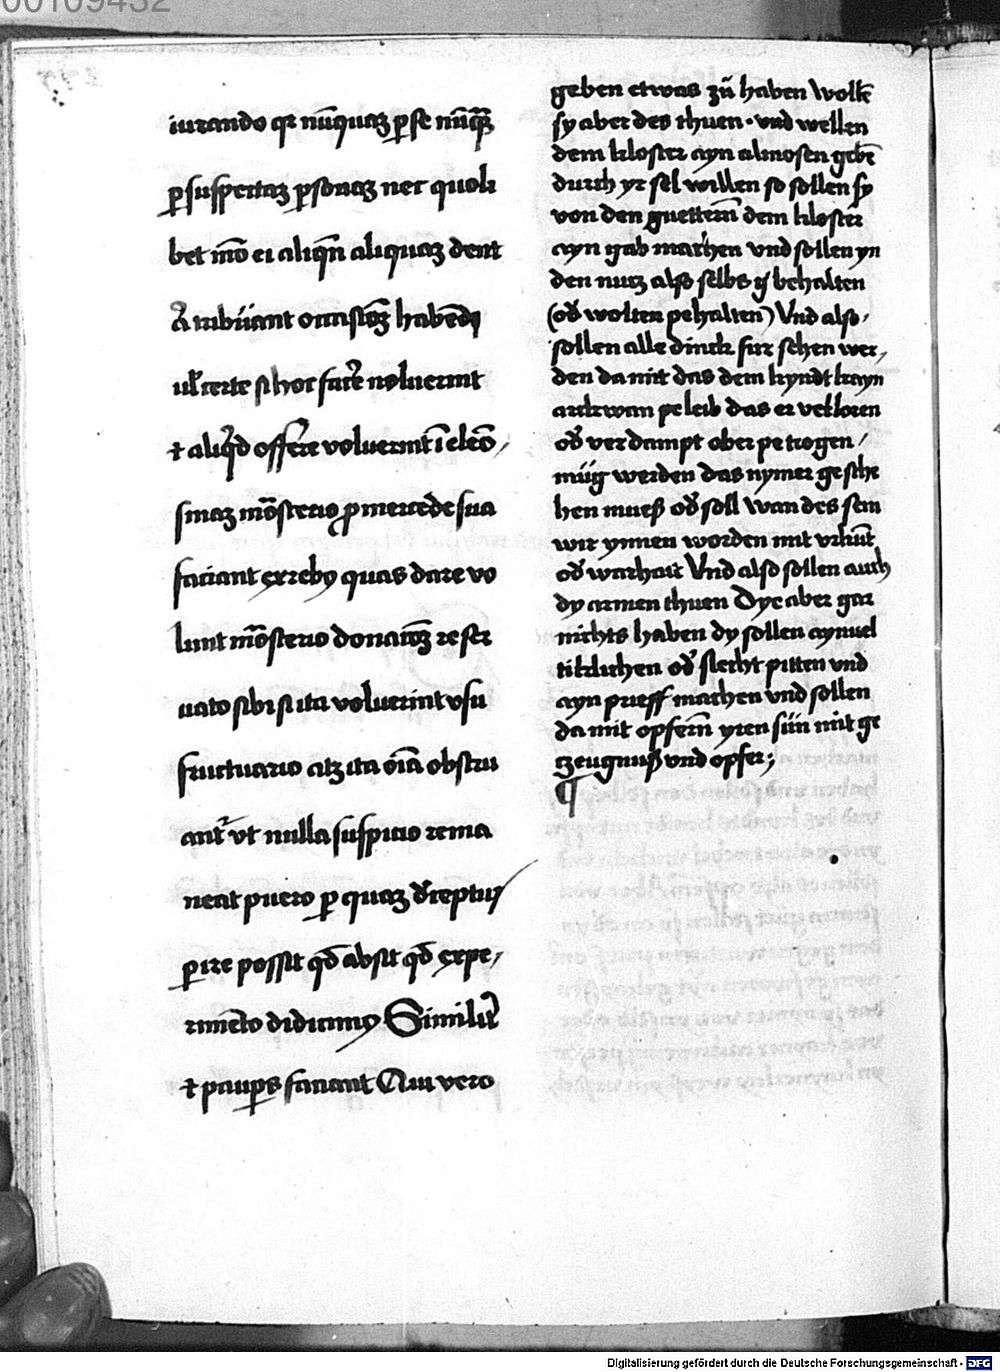 iurando qz nūquaꝫ ꝑ se nūq̄ꝫ
ꝑ suspectaꝫ ꝑsonaꝫ nec quoli
bet mōo ei aliqn̄ aliquaꝫ dent
tribuant occasioēꝫ habēdi
uł certe si hoc facẽ noluerint
⁊ aliqͥd offerre voluerint ī eleō
sinaꝫ mōasterio ꝓ mercede sua
faciant ex rebꝰ quas dare vo
lunt mōasterio donacōeꝫ reser
uato sibi si ita voluerint vsu
fructuario atꝫ ita oīa obstru
antᷣ vt nulla suspicio rema
neat puero ꝑ quaꝫ deceptus
ꝑire possit qd̄ absit qd̄ expe,
rimēto didicimꝰ Similitͬ
⁊ pauꝑes faciant Qui vero
geben etwas zů haben Wollē
sy aber des thuen · vnd wellen
dem kloster ayn almosen gebē
durch yr sel willen so sollen sy
von den guetterñ dem kloster
ayn gab machen vnd sollen yn
den nutz also selbs behalten
(od̛ wolten pehalten) Vnd also,
sollen alle dinck fur sehen wer,
den da mit das dem kyndt kayn
arckwan peleib das er verloren
od̛ verdampt ober petrogen /
müg werden das nymer gesche
hen mueß od̛ soll Wan des sein
wir ynnen worden mit vrkūt
od̛ warhait Vnd also sollen auch
dy armen thuen Dye aber gar
nichts haben dy sollen aynuel
tiklichen od̛ slecht pitten vnd
ayn prieff machen vnd sollen
da mit opferñ yren sün mit ge
tzeugnuß vnd opfer;
¶
Digitalisierung gefördert durch die Deutsche Forschungsgemeinschaft - DFG